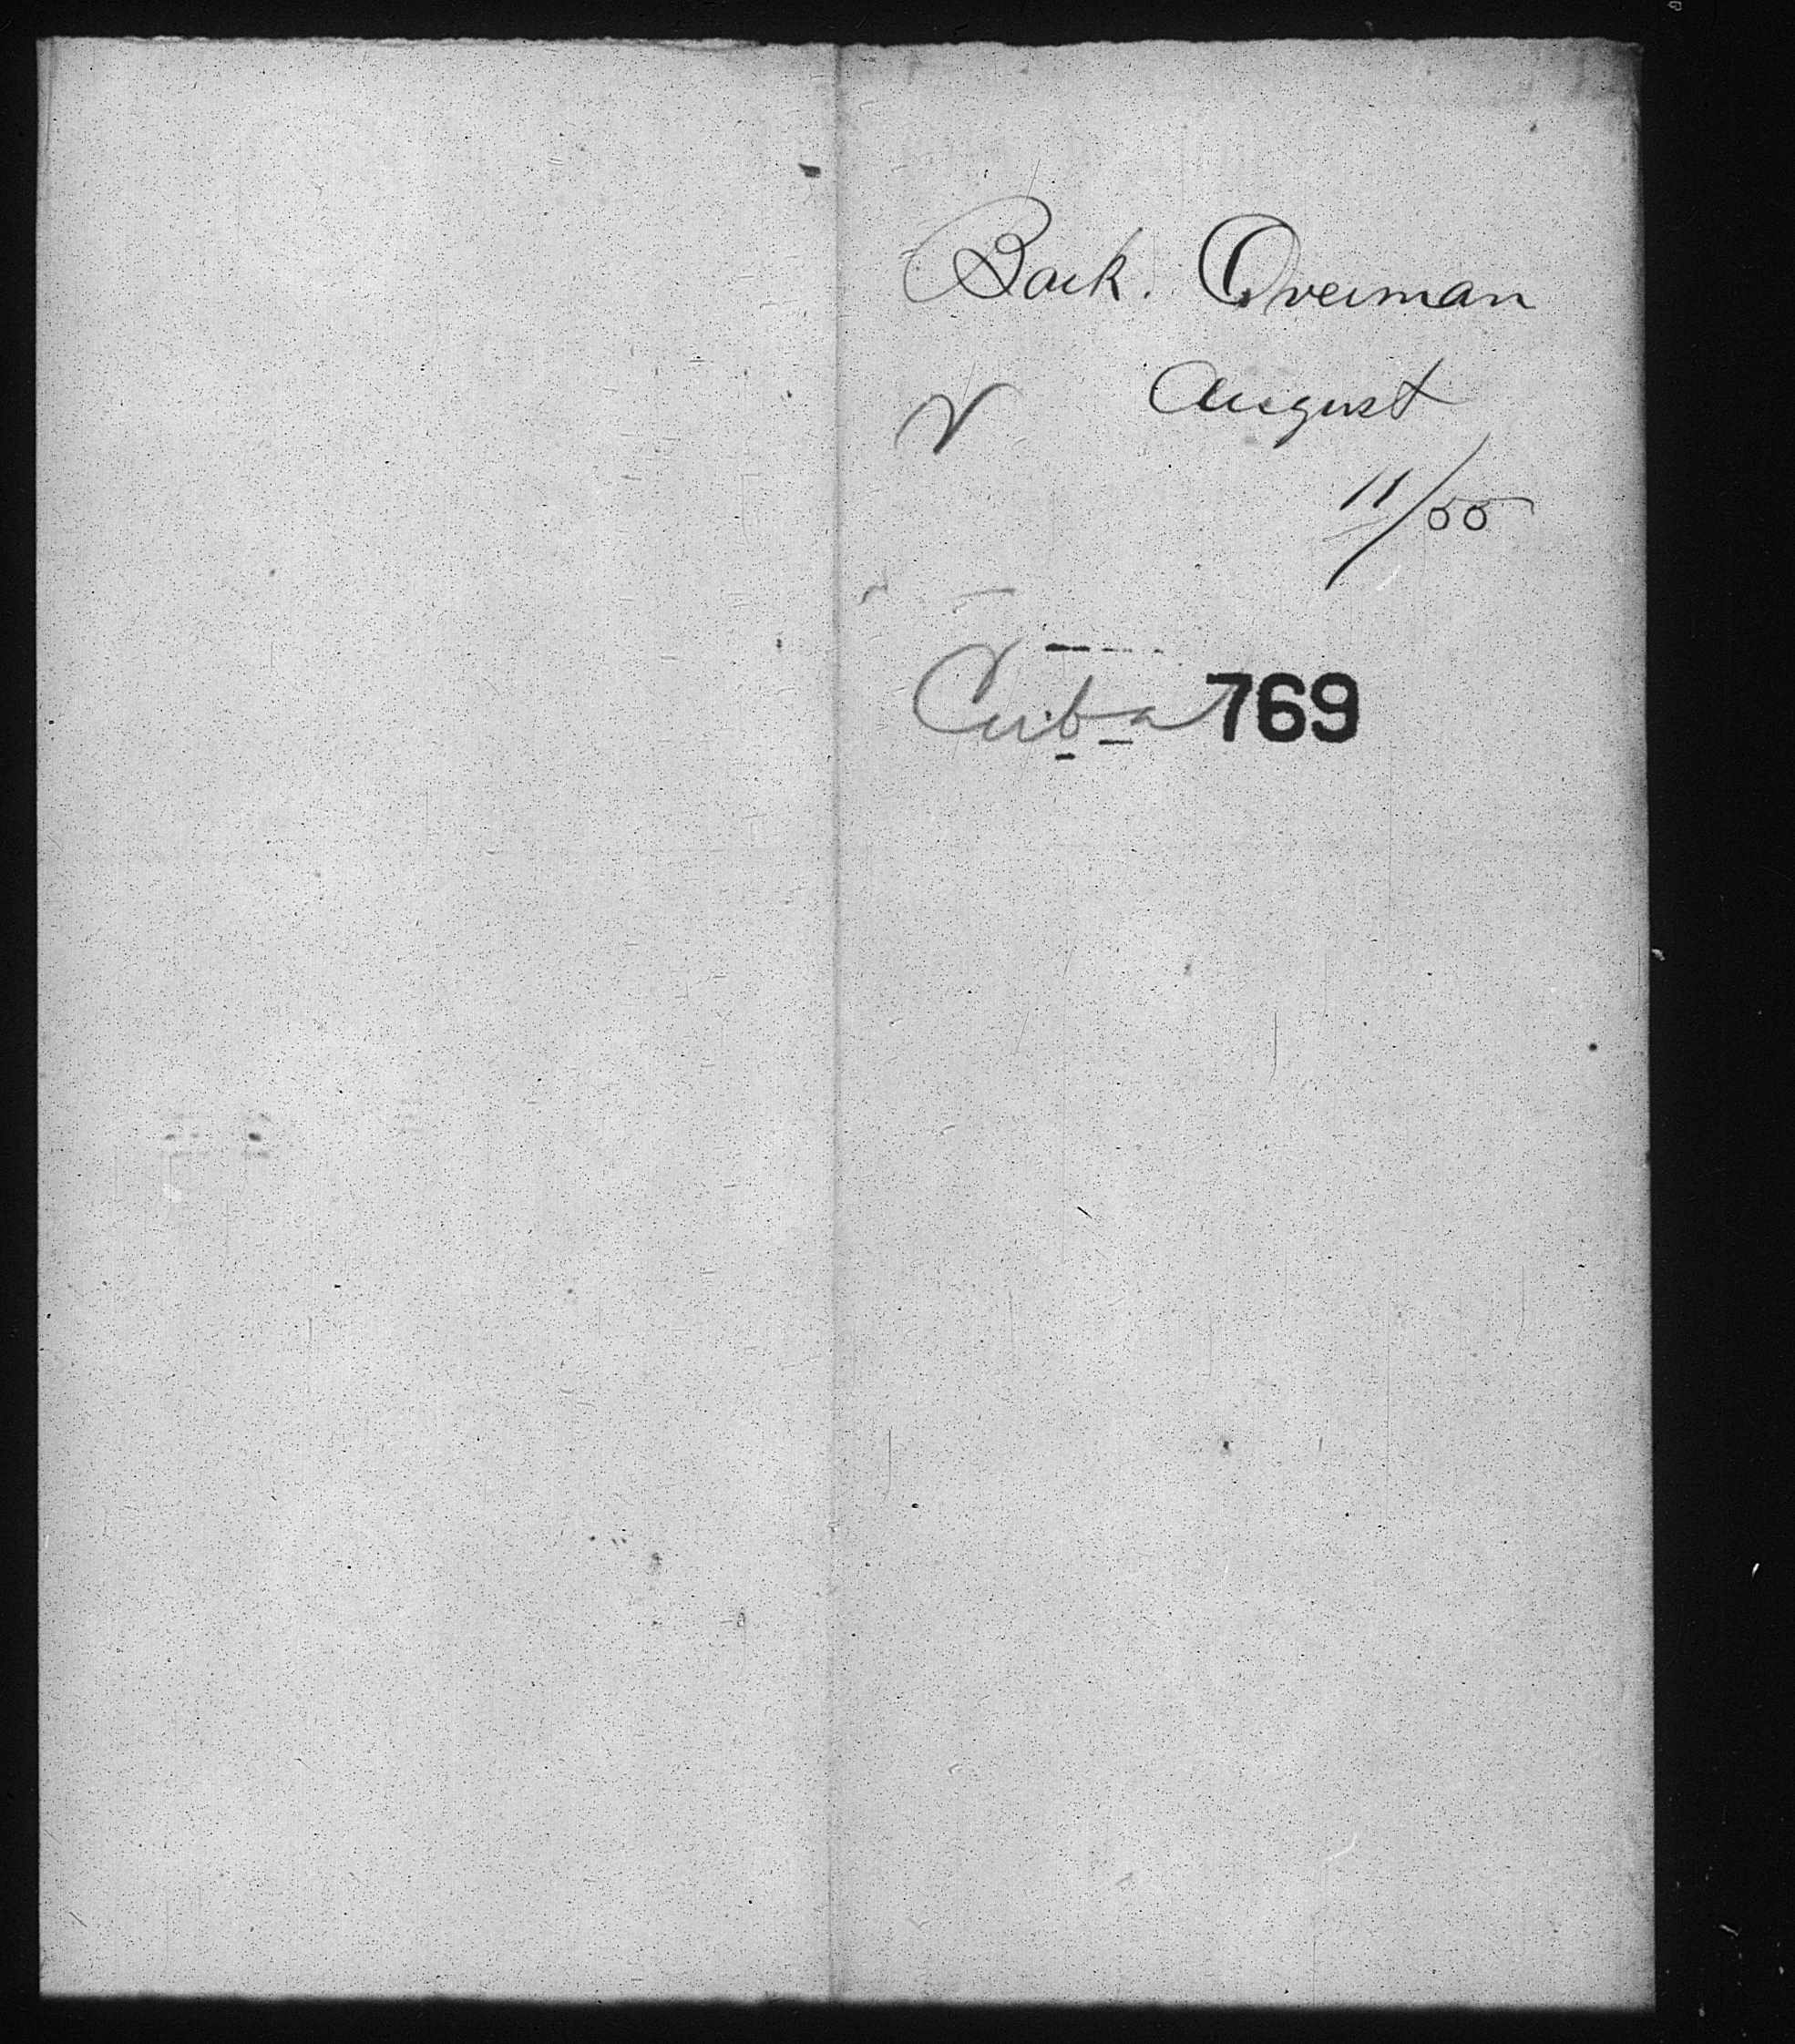 Bark. Overman
August
11/00
Cuba 769